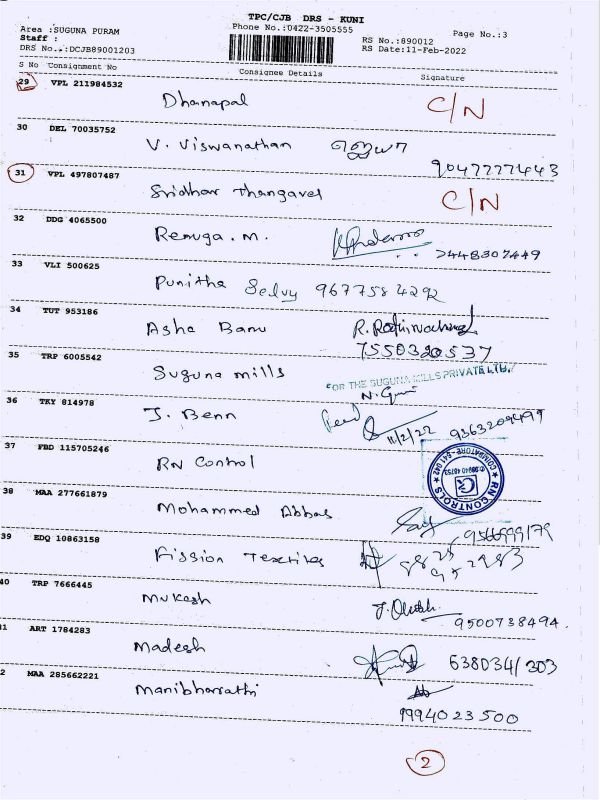 TPC/CJB DRS - KUNI
Area :SUGUNA PURAM Phone No.:0422-3505555 Page No.:3
Staff : RS No.:890012
DRS No.:DCJB89001203 RS Date:11-Feb-2022
S No Consignment No Consignee Details Signature
29 VPL 211984532
Dhanapal C/N
30 DEL 70035752
V. Viswanathan
9047277443
31 VPL 497807487
Sridhar Thangavel C/N
32 DDG 4065500
Renuga. m.
7448307449
33 VLI 500625
Punitha Selvy 9677584292
34 TUT 953186
Asha Banu
7550320537
35 TRP 6005542
Suguna mills FOR THE SUGUNA MILLS PRIVATE LTD.,
36 TKY 814978
J. Benn 11/2/22 9363209499
37 FBD 115705246
RN Control
RN CONTROLS COIMBATORE - 641 042
38 MAA 277661879
Mohammed Abbas
9566999179
39 EDQ 10863158
Fission Textiles
40 TRP 7666445
Mukesh
9500738494.
41 ART 1784283
Madesh 638034/303
42 MAA 285662221
Manibharathi
9994023500
2